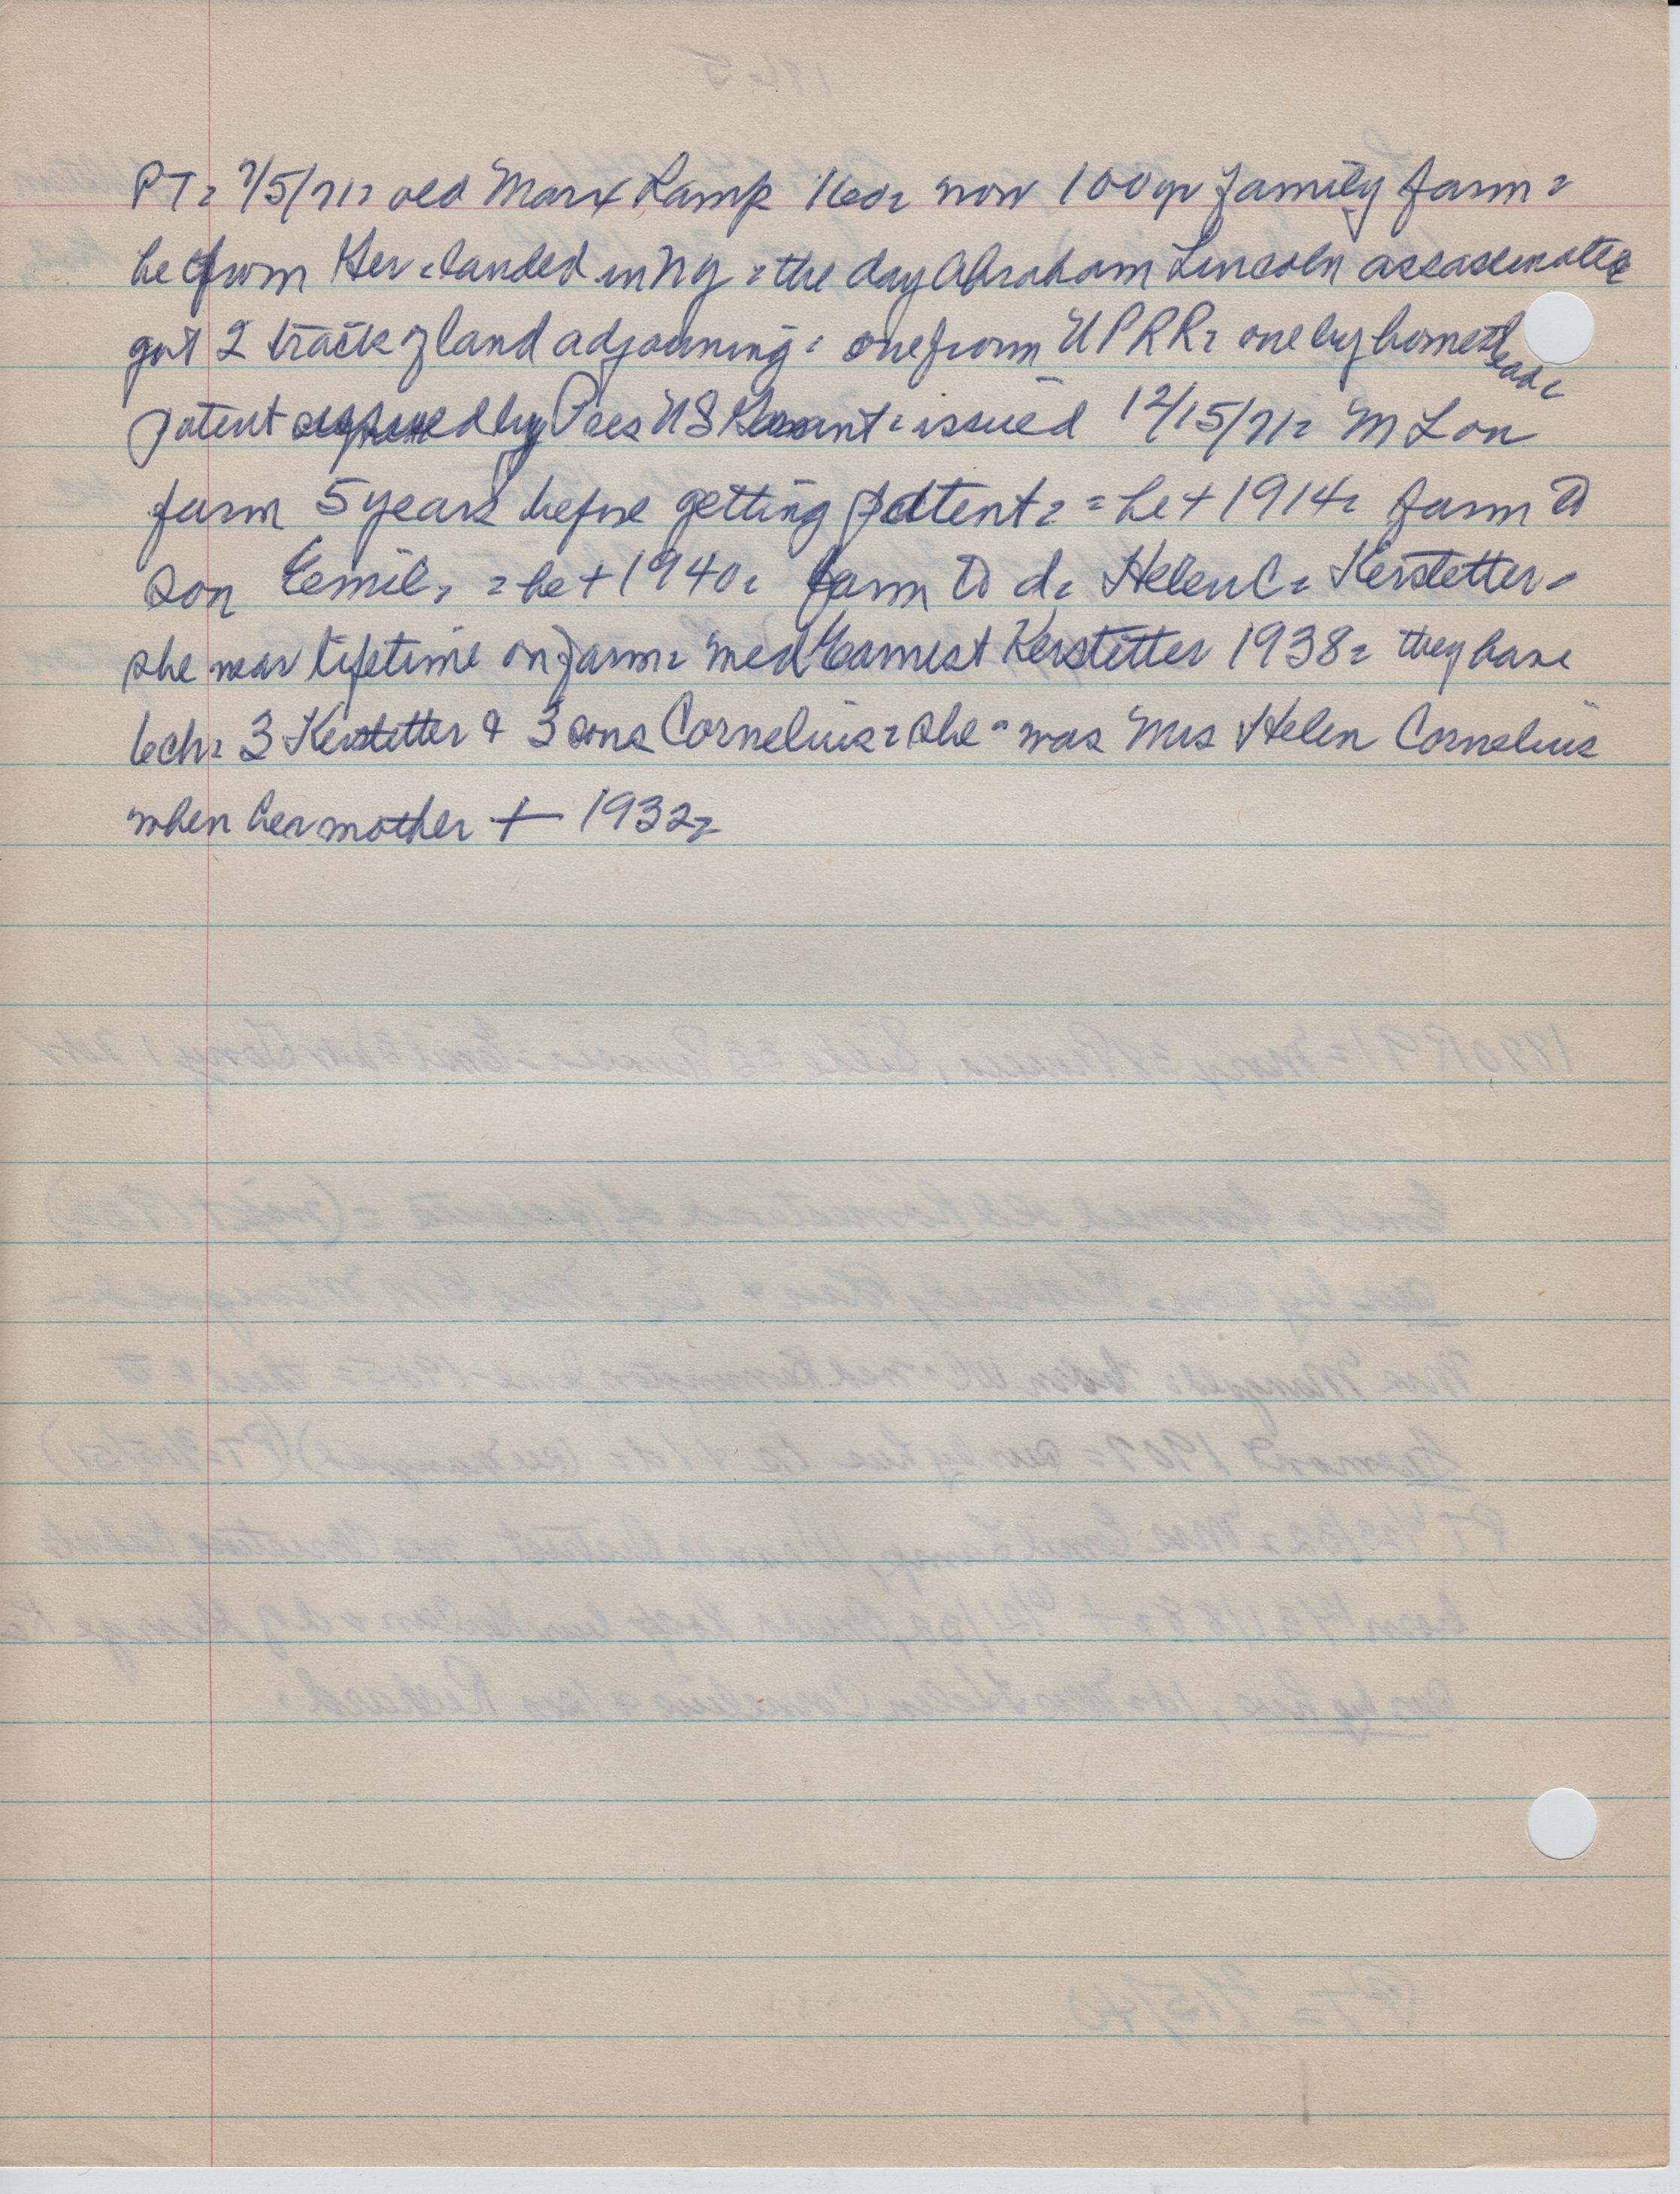 PT= 7/5/71= old Marx Lamp 160= now 100 yr family farm=
he from Ger = landed in NY = the day Abraham Lincoln assassinated
got 2 track of land adjoining = one from UPRR= one by homestead=
patent signed by Pres US Grant = issued 12/15/71= ML on
farm 5 years before getting patent = = he + 1914= farm to
son Emil = = he + 1940= farm to d= Helen C= Kerstetter=
she near lifetime on farm= med Earnest Kerstetter 1938= they have
6ch= 3 Kerstetter & 3 sons Cornelius= she = was Mrs Helen Cornelius
when her mother + 1932=